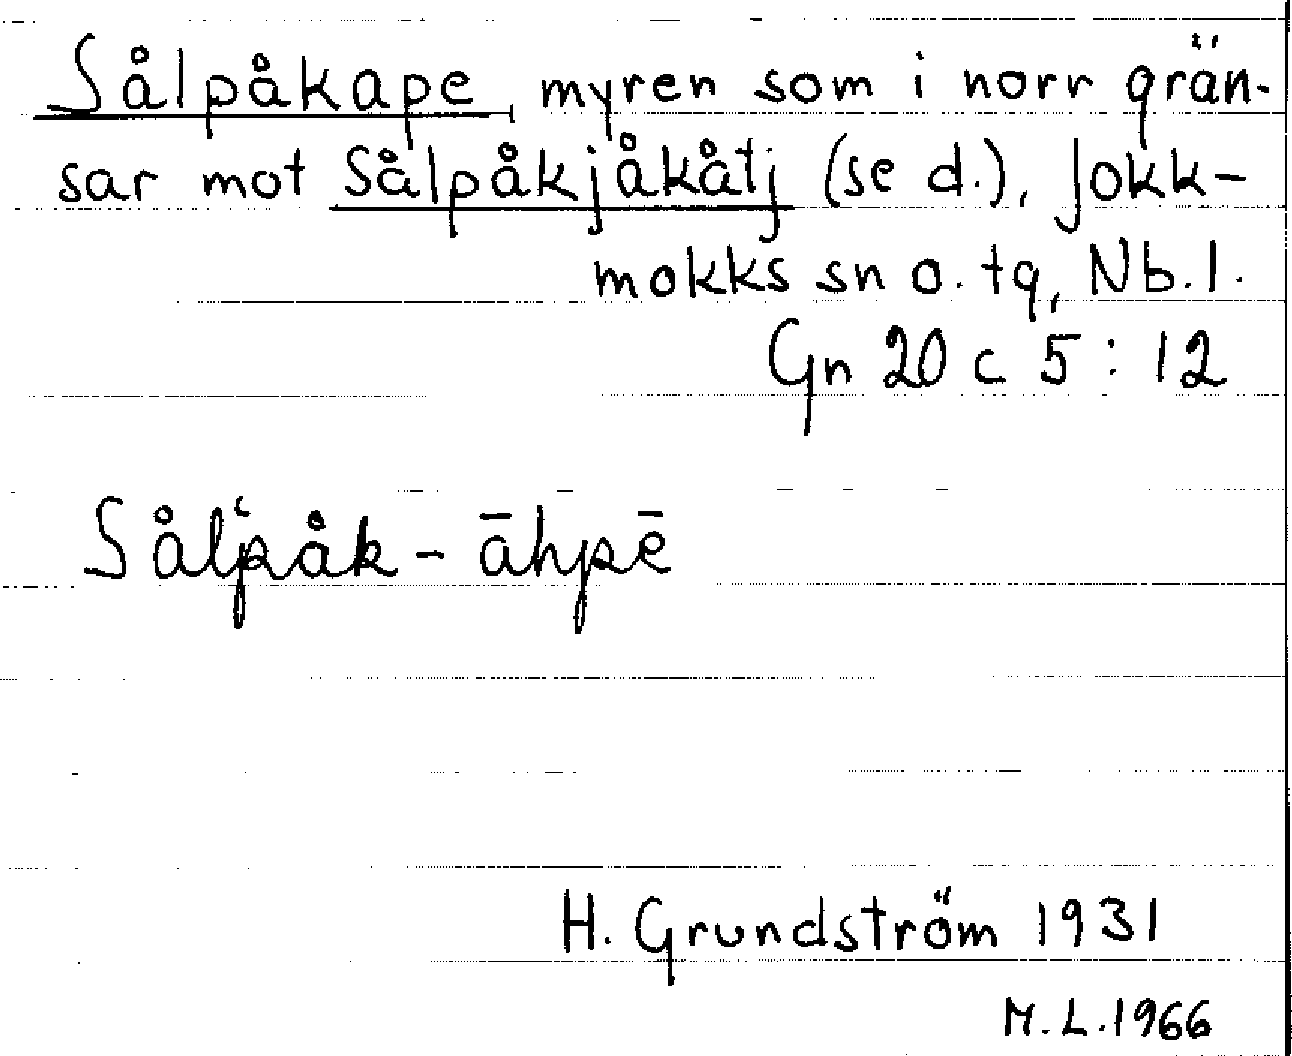 Sålpåkape, myren som i norr grän-
sar mot Sålpåkjåkåtj (se d.), Jokk-
mokks sn o. tg, Nb.l.
Gn 20 c 5 : 12
Sålʽpåk-āhpē
H. Grundström 1931
M.L.1966